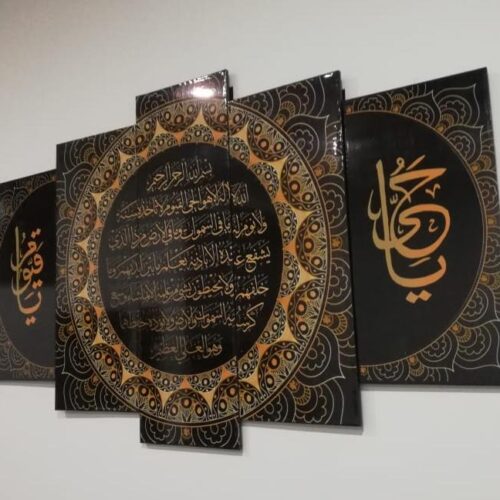 يا حي
بسم الله الرحمن الرحيم
الله لا إله إلا هو الحي القيوم لا تأخذه سنة
ولا نوم له ما في السموات وما في الأرض من ذا الذي
يشفع عنده إلا بإذنه يعلم ما بين أيديهم وما
خلفهم ولا يحيطون بشيء من علمه إلا بما شاء وسع
كرسيه السموات والأرض ولا يؤده حفظهما
وهو العلي العظيم
يا قيوم